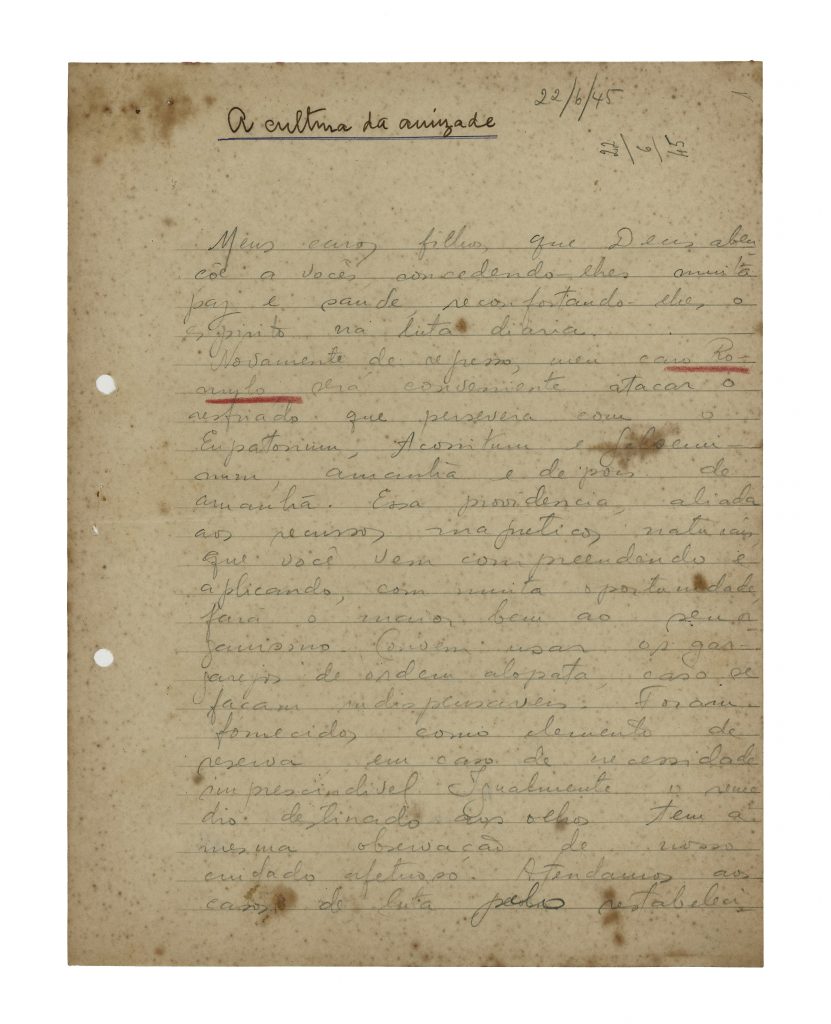 22/6/45
A cultura da amizade
22/6/45
Meus caros filhos, que Deus aben
çôe a vocês concedendo-lhes muita
paz e saude, reconfortando-lhes o
espirito na luta diaria.
Novamente de regresso, meu caro Ro-
mulo será conveniente atacar o
resfriado que persevera com o
Eupatorium, Aconitum e Gelsemi-
num, amanhã e depois de
amanhã. Essa providencia, aliada
aos recursos magneticos naturais
que você vem compreendendo e
aplicando, com muita oportunidade,
fará o maior bem ao seu or
ganismo. Convem usar os gar-
garejos de ordem alopata, caso se
façam indispensaveis. Foram
fornecidos como elemento de
reserva, em caso de necessidade
imprescindivel. Igualmente o reme
dio destinado aos olhos tem a
mesma observação de nosso
cuidado afetuoso. Atendamos aos
casos de luta pelo restabeleci